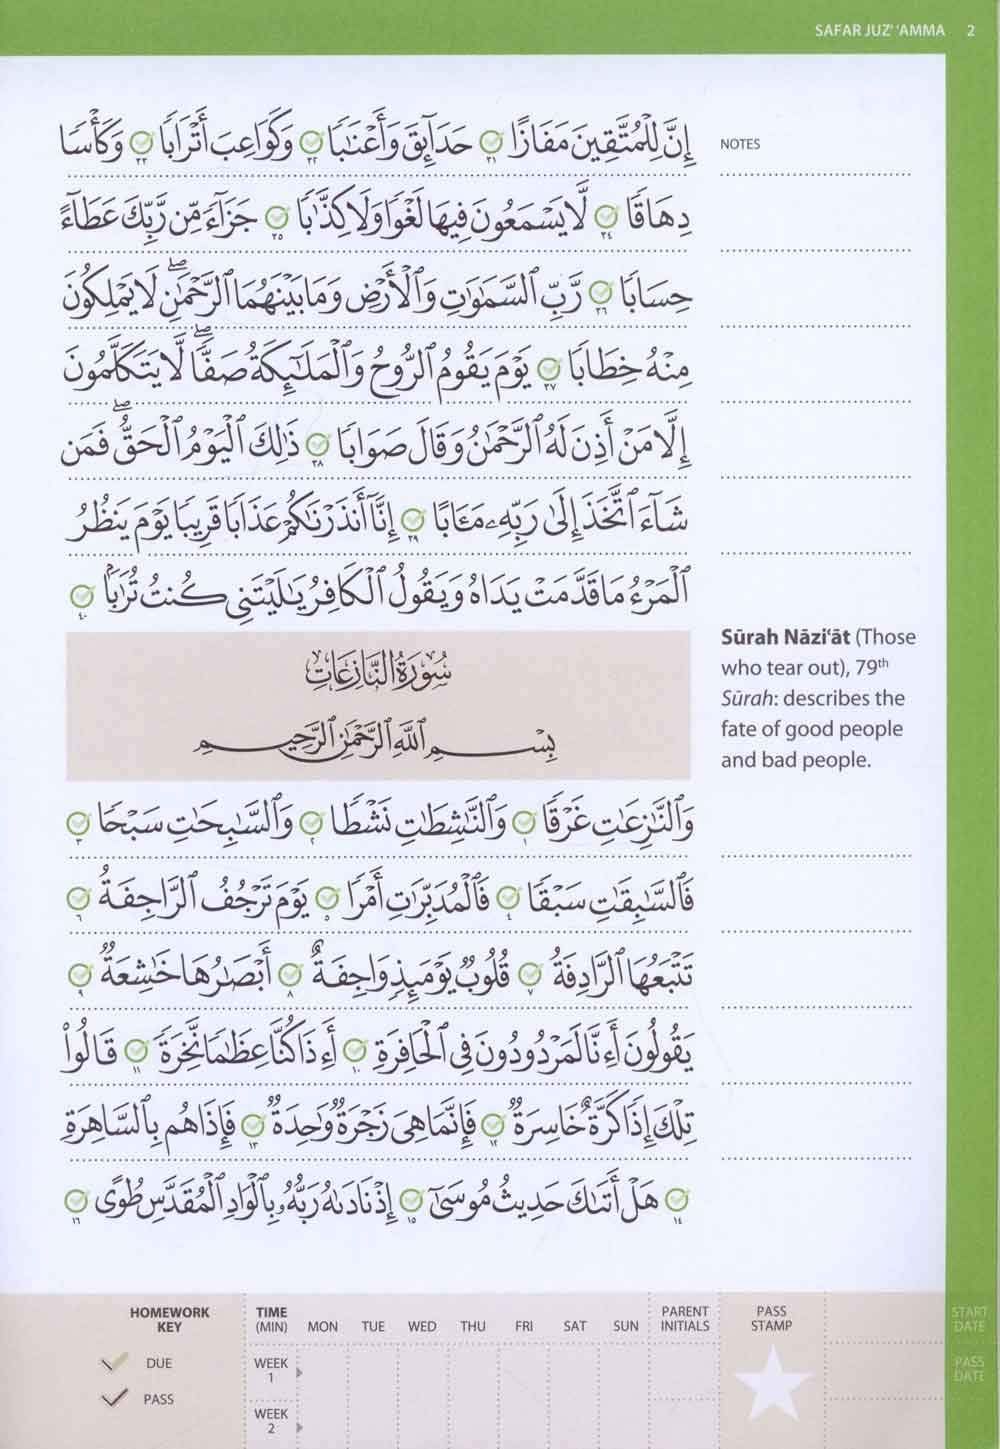 SAFAR JUZ' 'AMMA 2
NOTES
إِنَّ لِلْمُتَّقِينَ مَفَازًا ٣١ حَدَآئِقَ وَأَعْنَٰبًا ٣٢ وَكَوَاعِبَ أَتْرَابًا ٣٣ وَكَأْسًا
دِهَاقًا ٣٤ لَّا يَسْمَعُونَ فِيهَا لَغْوًا وَلَا كِذَّٰبًا ٣٥ جَزَآءً مِّن رَّبِّكَ عَطَآءً
حِسَابًا ٣٦ رَّبِّ ٱلسَّمَٰوَٰتِ وَٱلْأَرْضِ وَمَا بَيْنَهُمَا ٱلرَّحْمَٰنِۖ لَا يَمْلِكُونَ
مِنْهُ خِطَابًا ٣٧ يَوْمَ يَقُومُ ٱلرُّوحُ وَٱلْمَلَٰٓئِكَةُ صَفًّاۖ لَّا يَتَكَلَّمُونَ
إِلَّا مَنْ أَذِنَ لَهُ ٱلرَّحْمَٰنُ وَقَالَ صَوَابًا ٣٨ ذَٰلِكَ ٱلْيَوْمُ ٱلْحَقُّۖ فَمَن
شَآءَ ٱتَّخَذَ إِلَىٰ رَبِّهِۦ مَـَٔابًا ٣٩ إِنَّآ أَنذَرْنَٰكُمْ عَذَابًا قَرِيبًا يَوْمَ يَنظُرُ
ٱلْمَرْءُ مَا قَدَّمَتْ يَدَاهُ وَيَقُولُ ٱلْكَافِرُ يَٰلَيْتَنِى كُنتُ تُرَٰبًۢا ٤٠
سُورَةُ ٱلنَّازِعَاتِ
بِسْمِ ٱللَّهِ ٱلرَّحْمَٰنِ ٱلرَّحِيمِ
Sūrah Nāzi‘āt (Those
who tear out), 79th
Sūrah: describes the
fate of good people
and bad people.
وَٱلنَّٰزِعَٰتِ غَرْقًا ١ وَٱلنَّٰشِطَٰتِ نَشْطًا ٢ وَٱلسَّٰبِحَٰتِ سَبْحًا ٣
فَٱلسَّٰبِقَٰتِ سَبْقًا ٤ فَٱلْمُدَبِّرَٰتِ أَمْرًا ٥ يَوْمَ تَرْجُفُ ٱلرَّاجِفَةُ ٦
تَتْبَعُهَا ٱلرَّادِفَةُ ٧ قُلُوبٌ يَوْمَئِذٍ وَاجِفَةٌ ٨ أَبْصَٰرُهَا خَٰشِعَةٌ ٩
يَقُولُونَ أَءِنَّا لَمَرْدُودُونَ فِى ٱلْحَافِرَةِ ١٠ أَءِذَا كُنَّا عِظَٰمًا نَّخِرَةً ١١ قَالُوا۟
تِلْكَ إِذًا كَرَّةٌ خَاسِرَةٌ ١٢ فَإِنَّمَا هِىَ زَجْرَةٌ وَٰحِدَةٌ ١٣ فَإِذَا هُم بِٱلسَّاهِرَةِ
١٤ هَلْ أَتَىٰكَ حَدِيثُ مُوسَىٰٓ ١٥ إِذْ نَادَىٰهُ رَبُّهُۥ بِٱلْوَادِ ٱلْمُقَدَّسِ طُوًى ١٦
HOMEWORK
KEY
DUE
PASS
TIME
(MIN) MON TUE WED THU FRI SAT SUN
PARENT
INITIALS
PASS
STAMP
START
DATE
PASS
DATE
WEEK
1
WEEK
2